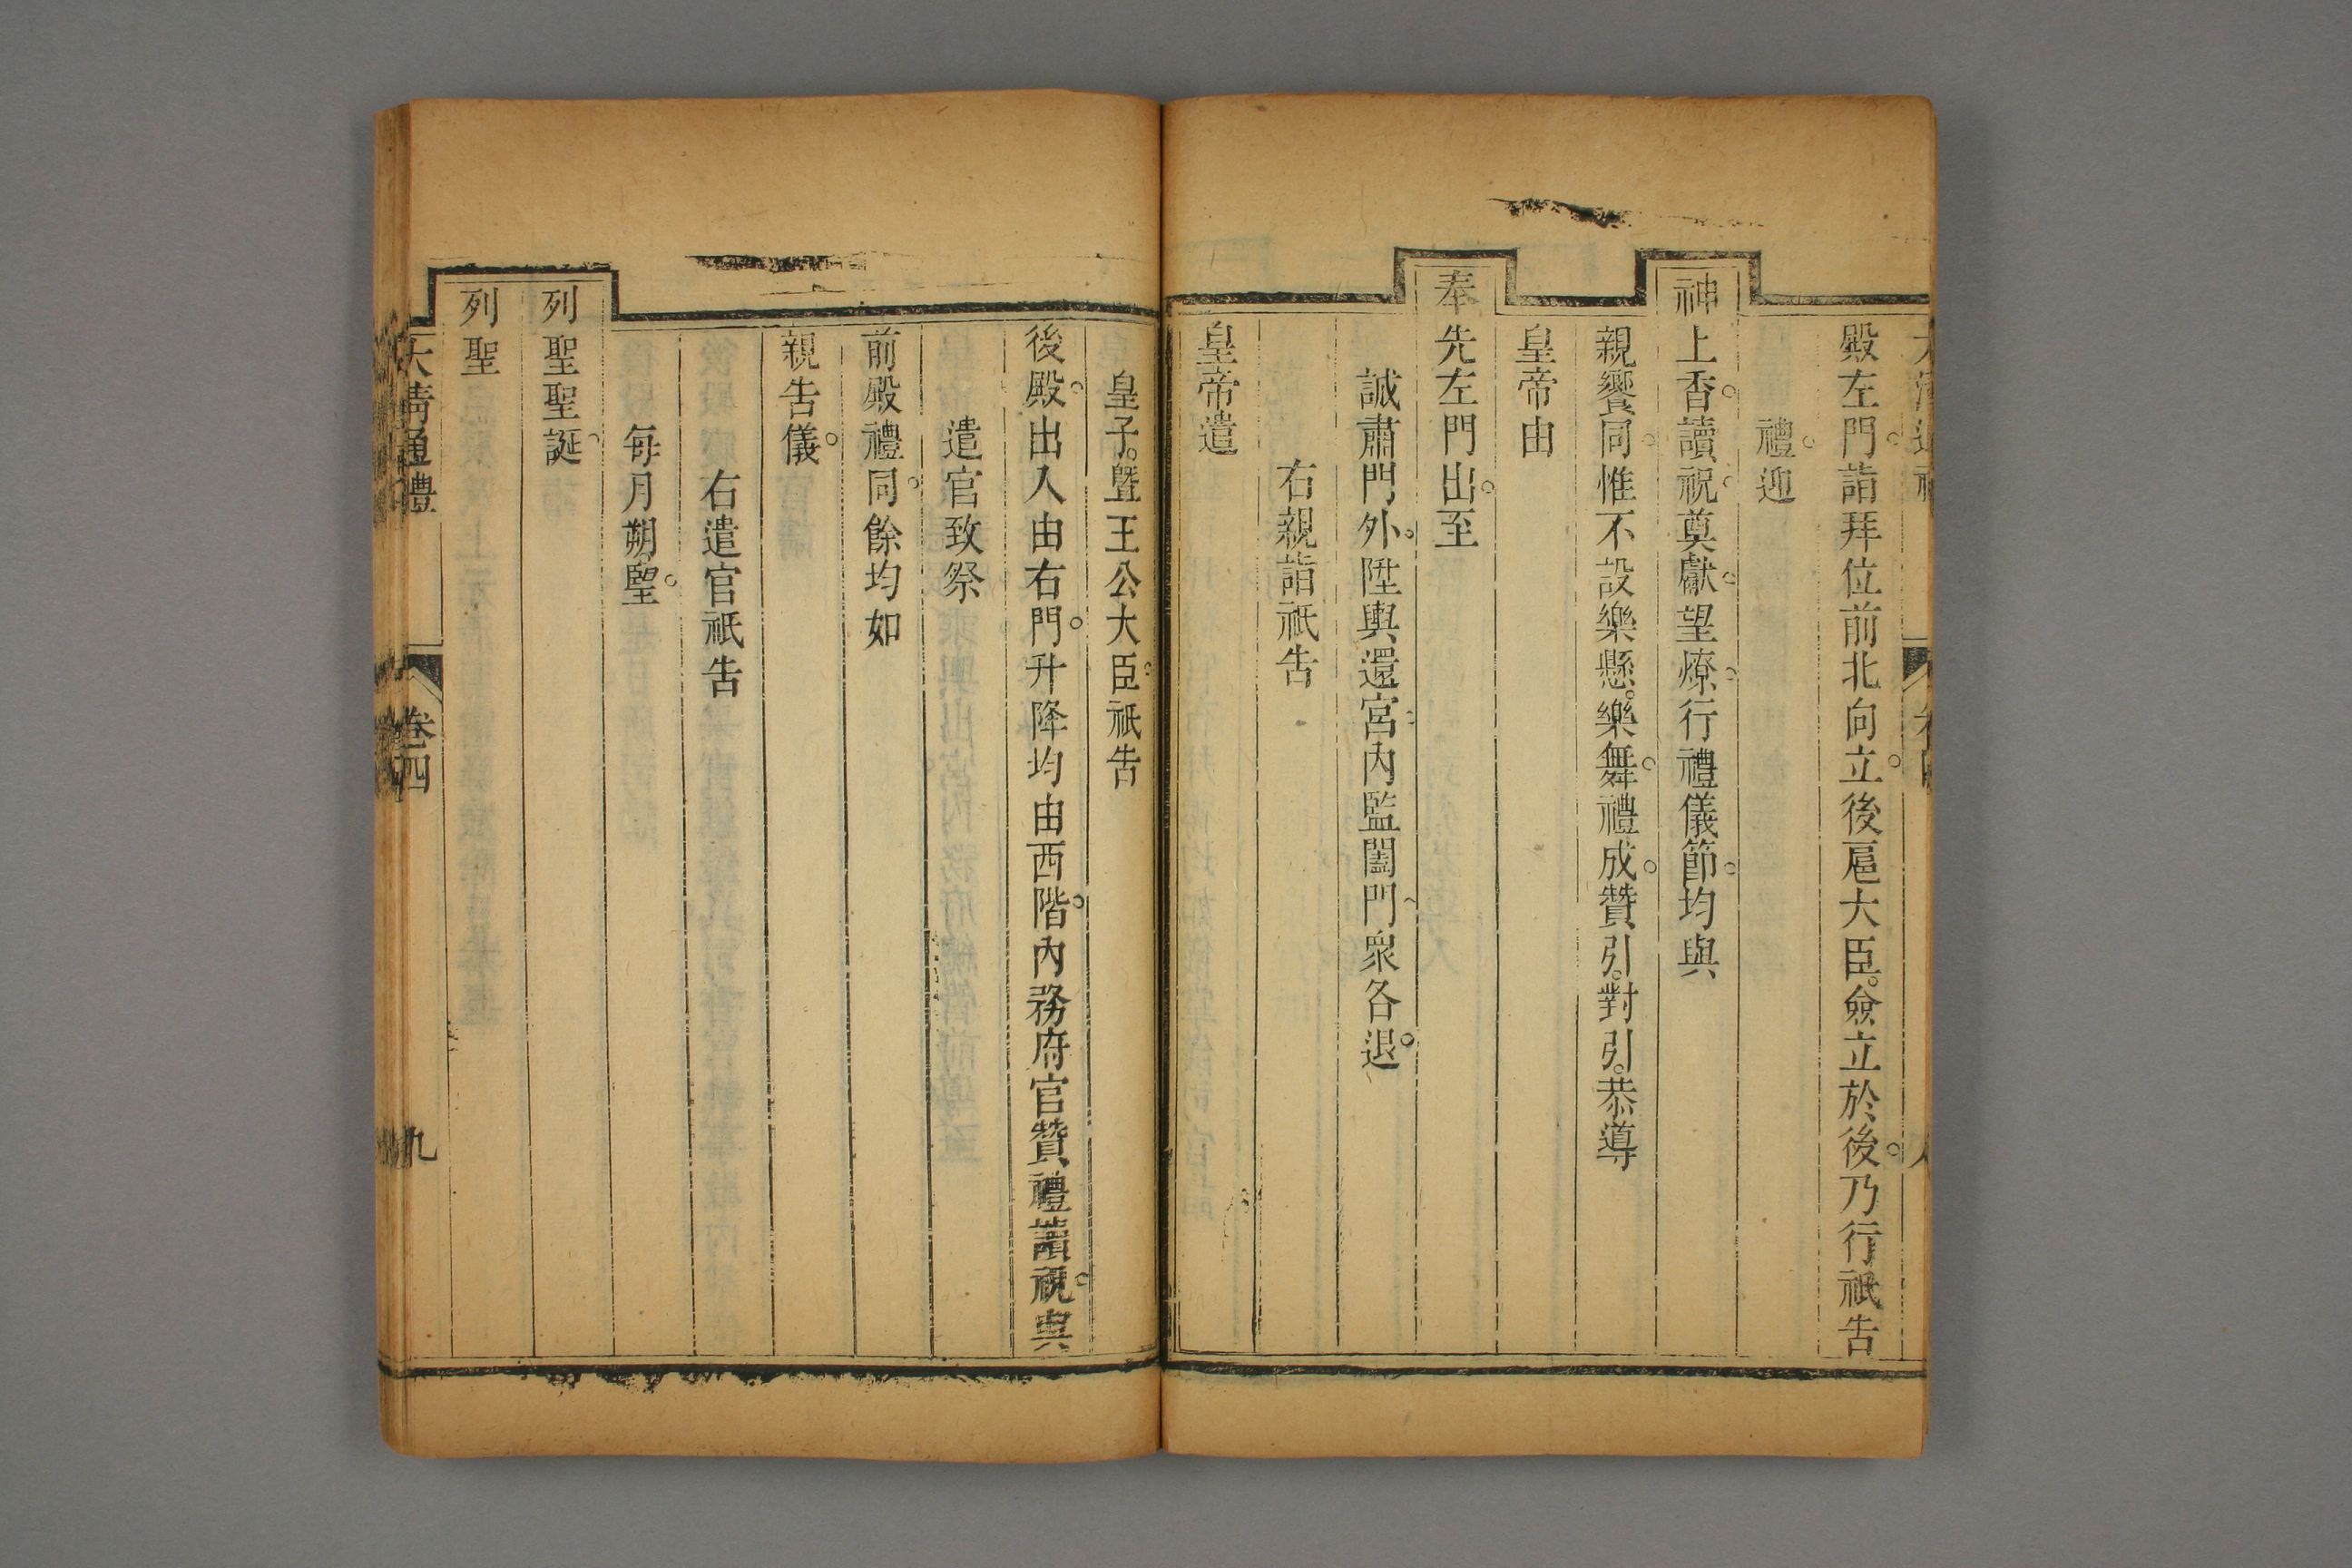 殿左門。詣拜位前北向立。後扈大臣。僉立於後。乃行祇告
禮。迎
神上香。讀祝。奠獻。望燎。行禮儀節。均與
親饗同。惟不設樂懸。樂舞。禮成。贊引。對引。恭導
皇帝由
奉先左門出。至
誠肅門外。陞輿還宮。內監闔門。衆各退。
右親詣祇告
皇帝遣
皇子。曁王公大臣。祇告
後殿。出入由右門。升降均由西階。內務府官贊禮讀祝。與
遣官致祭
前殿禮同。餘均如
親告儀。
右遣官祇告
每月朔。朢。
列聖聖誕。
列聖
大淸通禮
卷四
九